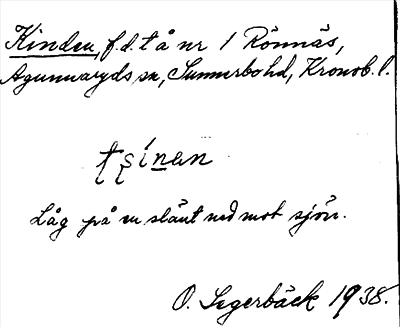 Kinden, f.d. t å nr 1 Rönnäs,
Agunnaryds sn, Sunnerbo hd, Kronob. l.
tṣinan
Låg på en slänt ned mot sjön.
O. Segerbäck 1938.